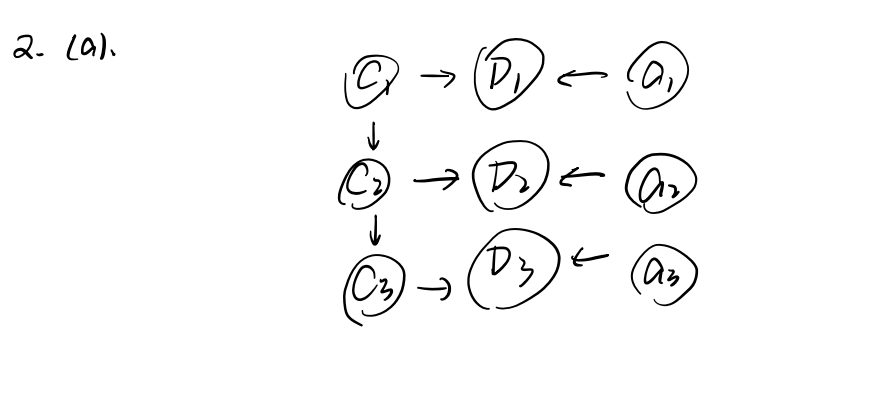 2. (a).
C1 → D1 ← a1
↓
C2 → D2 ← a2
↓
C3 → D3 ← a3